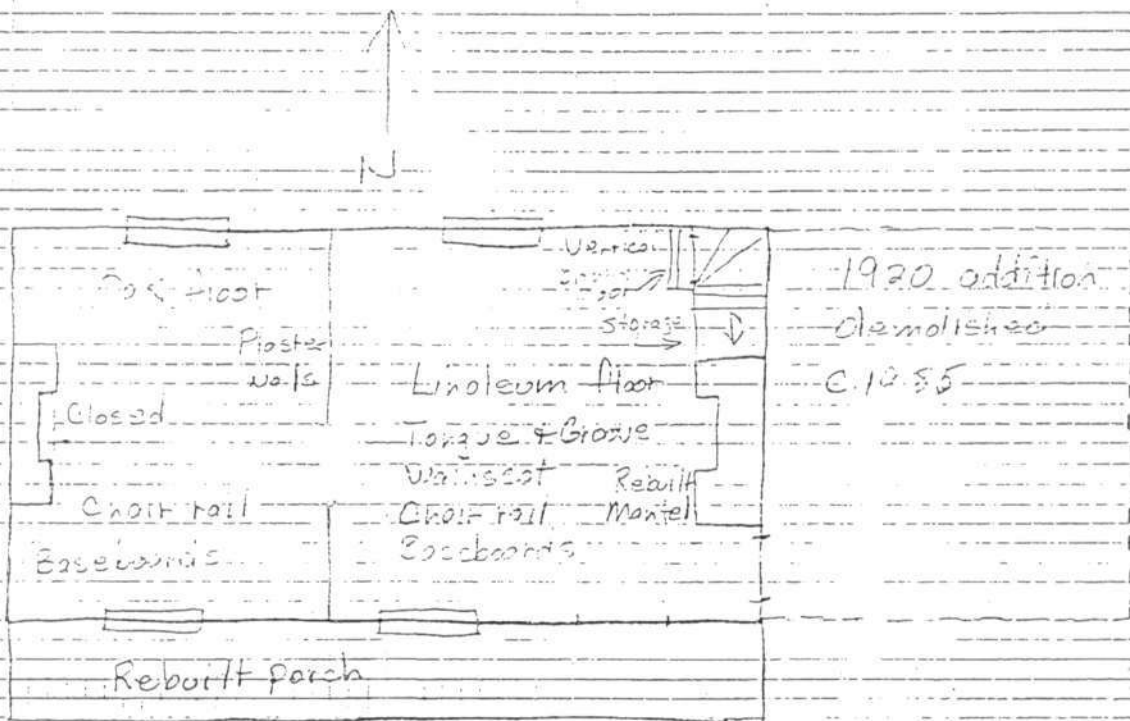 N
Oak floor
Plaster
walls
Closed
Chair rail
Baseboards
Vertical
Storage
Linoleum floor
Tongue & Groove
Wainscot
Chair rail
Baseboards
Rebuilt
Mantel
1920 addition
demolished
C. 1955
Rebuilt porch